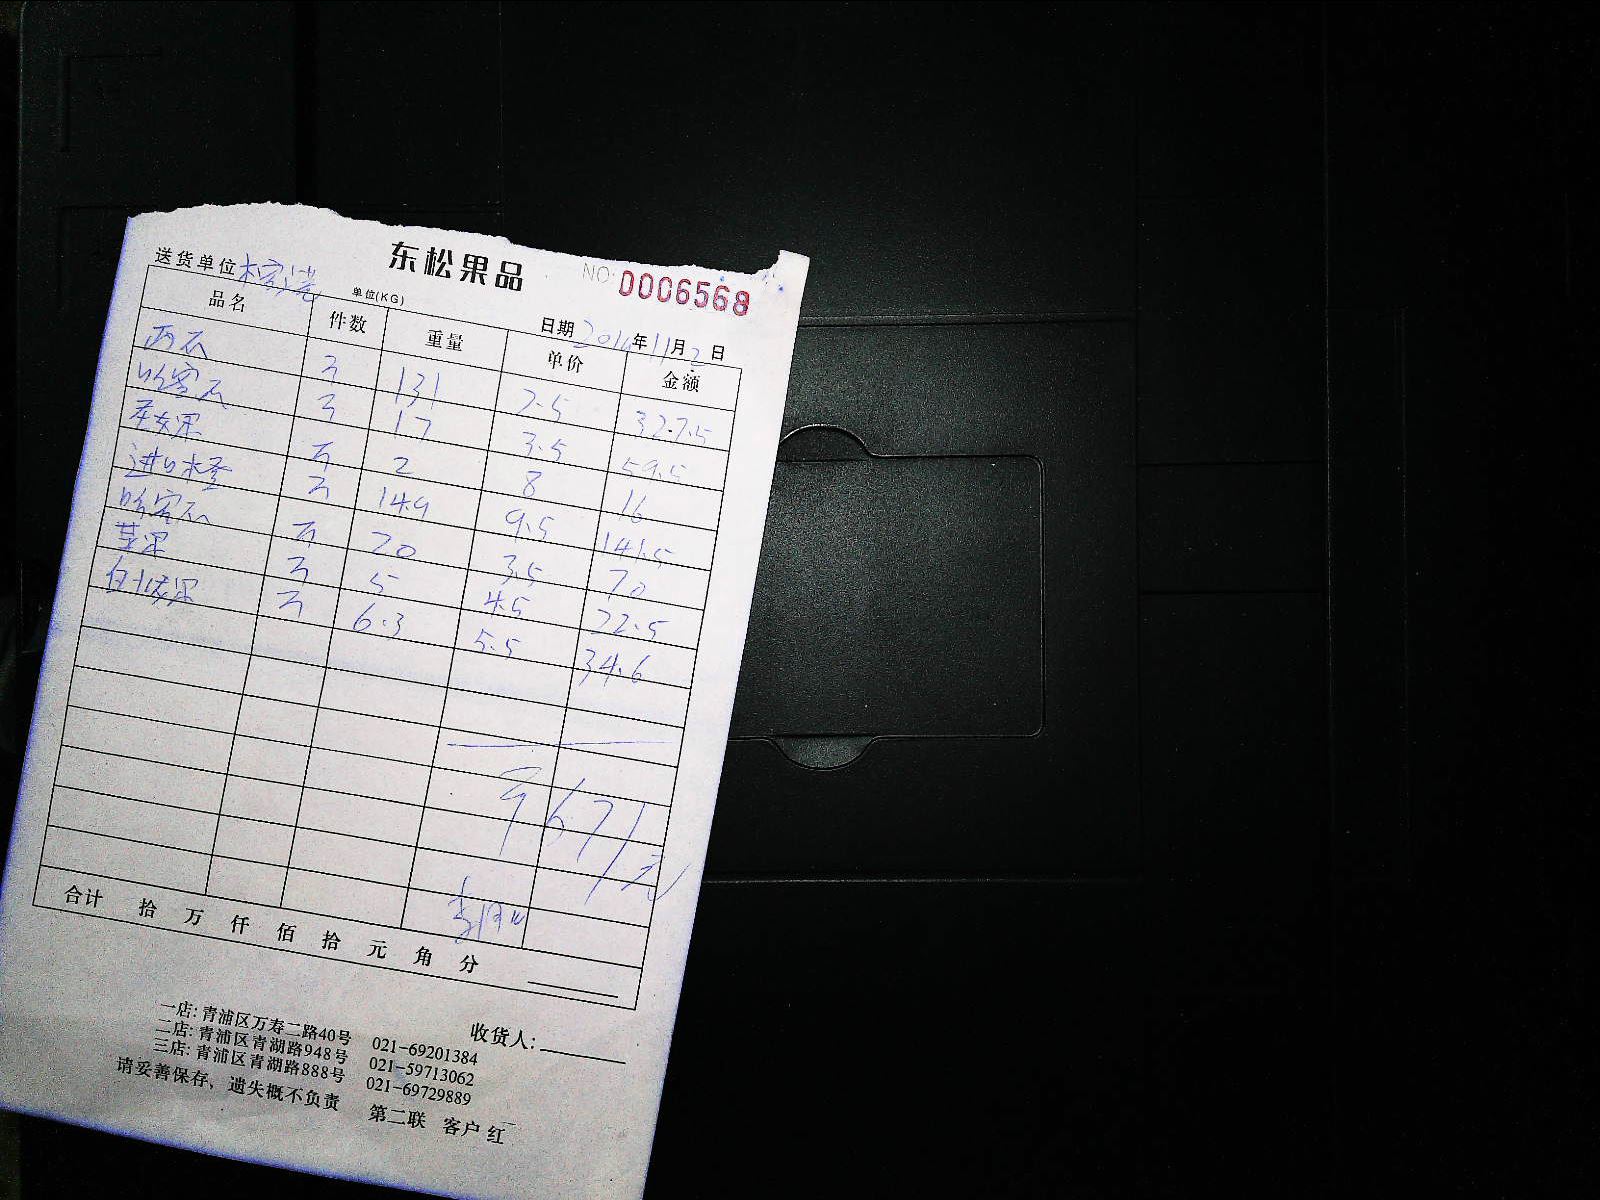 东松果品
NO: 0006568
送货单位
单位(KG)
日期 2014年11月2日
品名 件数 重量 单价 金额
西瓜 131 2.5 327.5
哈密瓜 17 3.5 59.5
圣女果 2 8 16
进口木登 14.9 9.5 141.5
哈密瓜 20 3.5 70
苹果 5 4.5 22.5
白火龙果 6.3 5.5 34.6
671元
合计 拾 万 仟 佰 拾 元 角 分
收货人:
一店: 青浦区万寿二路40号 021-69201384
二店: 青浦区青湖路948号 021-59713062
三店: 青浦区青湖路888号 021-69729889
请妥善保存，遗失概不负责 第二联 客户 红